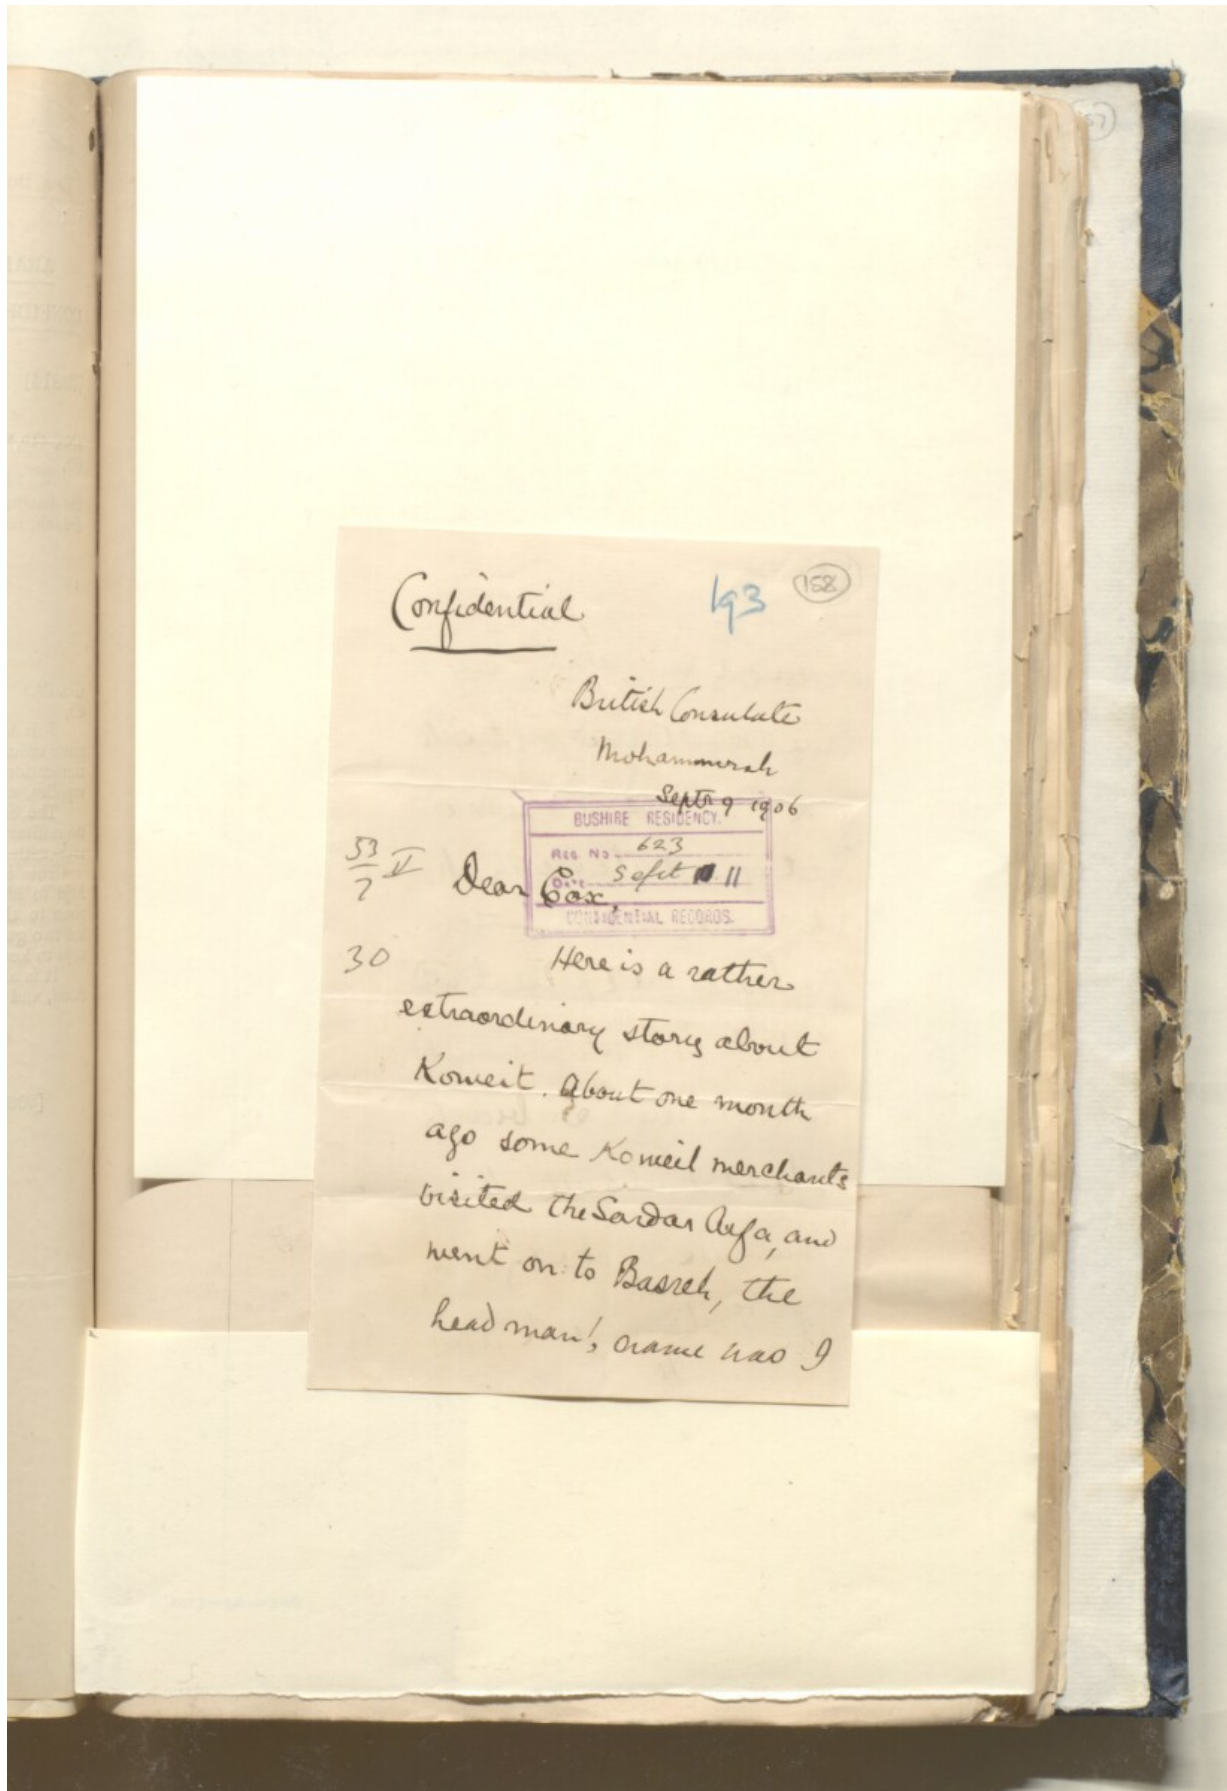 Confidential
193
158
British Consulate
Mohammerah
Septr 9 1906
BUSHIRE RESIDENCY.
REG. No. 623
Date Sept 11
CONFIDENTIAL RECORDS.
53/7 V
Dear Cox,
30
Here is a rather
extraordinary story about
Koweit. About one month
ago some Koweit merchants
visited the Sardar Arfa, and
went on to Basreh, the
head man's name was I